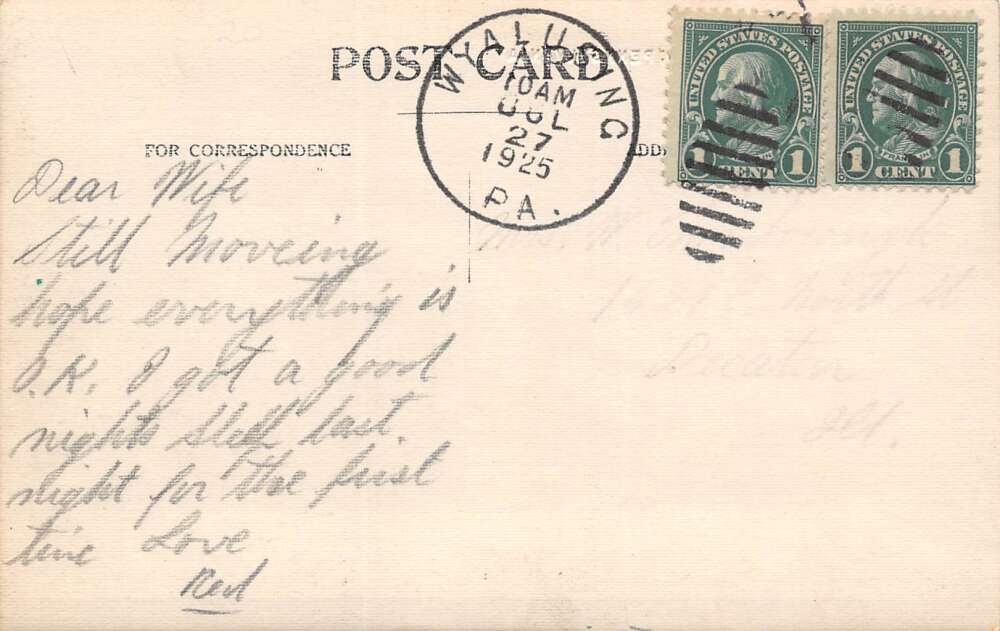 POST CARD
WYALUSING
10AM
JUL
27
1925
PA.
UNITED STATES POSTAGE
FRANKLIN
1 CENT 1
UNITED STATES POSTAGE
FRANKLIN
1 CENT 1
FOR CORRESPONDENCE
ADD
Dear Wife
Still Moveing
hope everything is
O.K. I got a good
nights sleep last.
night for the first
time Love
Red
Mrs. W.
St
Decatur
Ill.